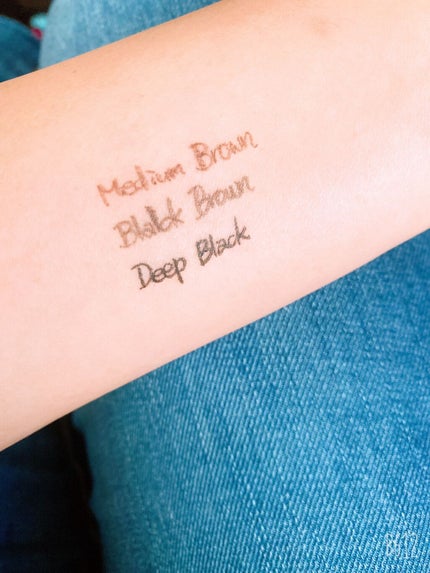 Medium Brown
Blalck Brown
Deep Black